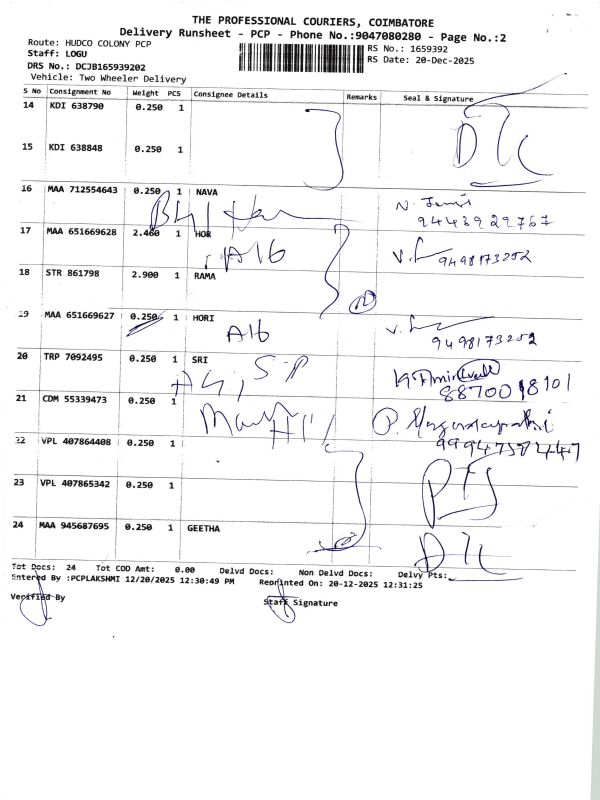 THE PROFESSIONAL COURIERS, COIMBATORE
Delivery Runsheet - PCP - Phone No.:9047080280 - Page No.:2
Route: HUDCO COLONY PCP
Staff: LOGU
RS No.: 1659392
DRS No.: DCJB165939202
RS Date: 20-Dec-2025
Vehicle: Two Wheeler Delivery
S No Consignment No Weight PCS Consignee Details Remarks Seal & Signature
14 KDI 638790 0.250 1
15 KDI 638848 0.250 1
16 MAA 712554643 0.250 1 NAVA
9443929767
17 MAA 651669628 2.460 1 HOR
A16 9498173252
18 STR 861798 2.900 1 RAMA
19 MAA 651669627 0.250 1 HORI
A16 9498173252
20 TRP 7092495 0.250 1 SRI
8870018101
21 CDM 55339473 0.250 1
22 VPL 407864408 0.250 1
23 VPL 407865342 0.250 1
24 MAA 945687695 0.250 1 GEETHA
Tot Docs: 24 Tot COD Amt: 0.00 Delvd Docs: Non Delvd Docs: Delvy Pts:
Entered By :PCPLAKSHMI 12/20/2025 12:30:49 PM Reprinted On: 20-12-2025 12:31:25
Verified By Staff Signature